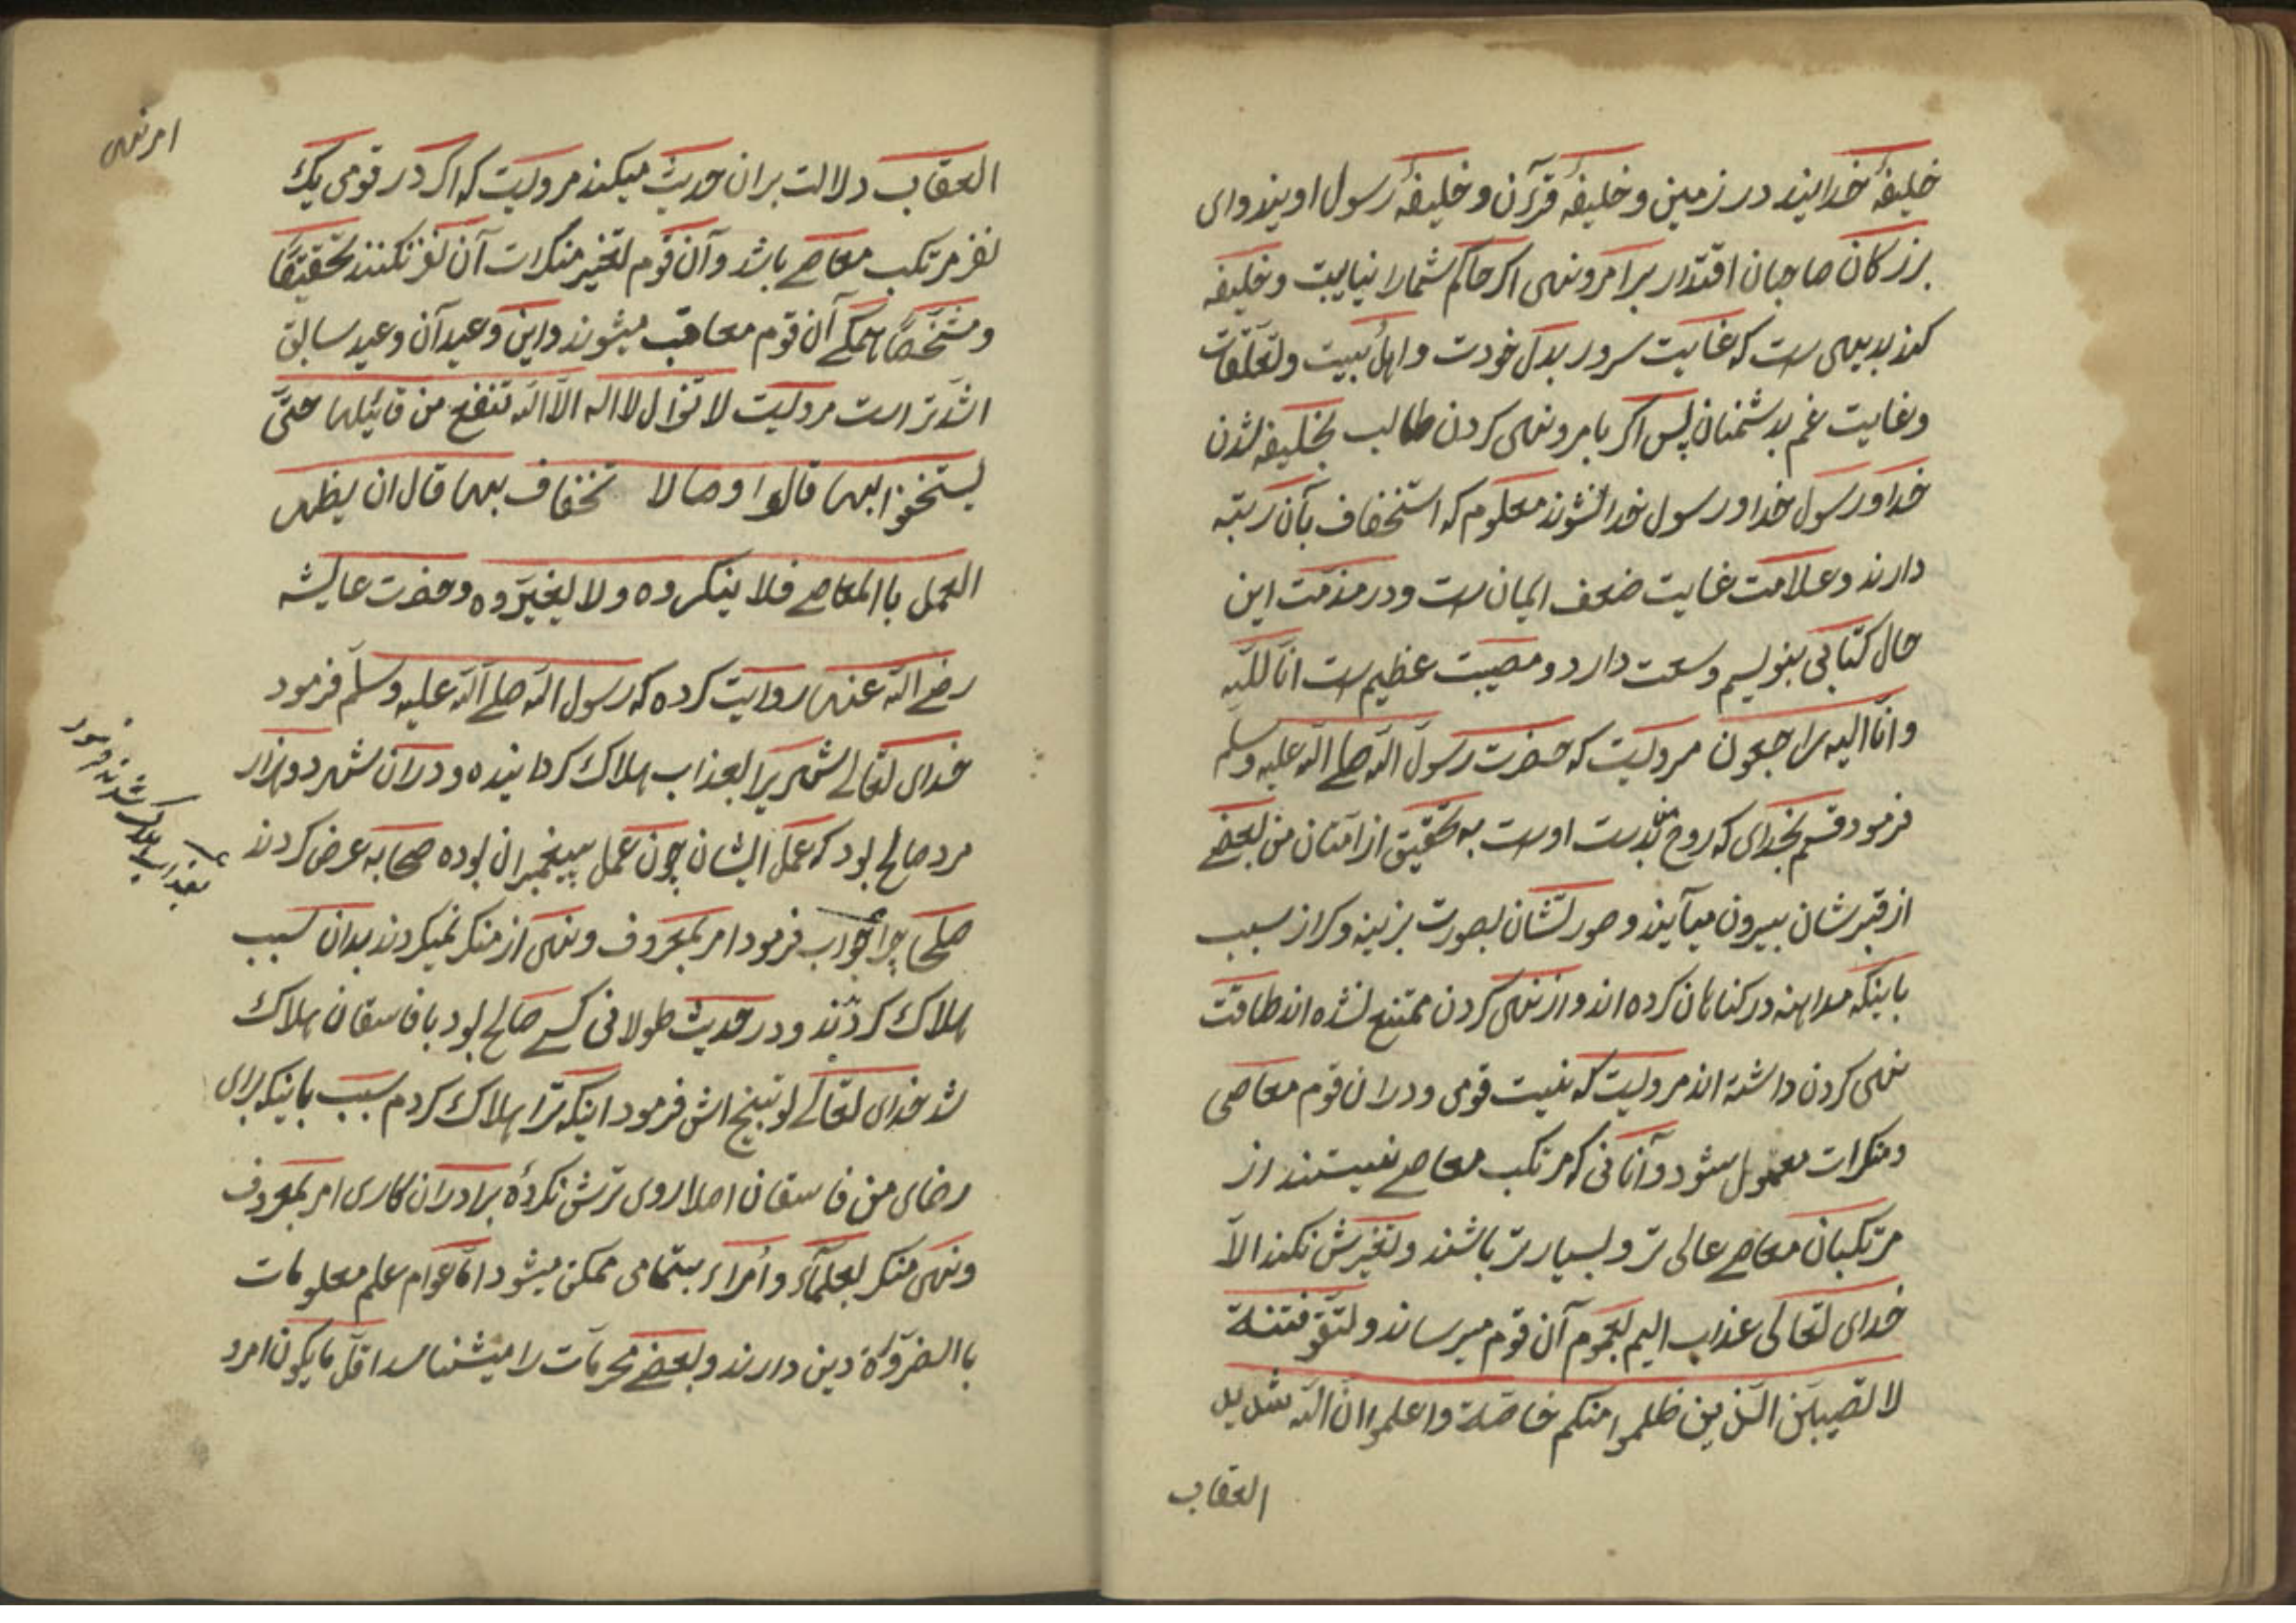 خلیفۀ خدایند در زمین و خلیفۀ قرآن و خلیفۀ رسول اویند وای
بزرکان صاحبان اقتدار بر امر و نهی اکر حاکم شما را نیابت و خلیفه
کند بدیهی است که غایت سرور بدل خودت و اهل بیت و تعلّقات
وغایت غم بدشمنان پس اکر بامر و نهی کردن طالب بخلیفه شدن
خدا و رسول خدا و رسول خدا نشوند معلوم که استخفاف بآن رتبه
دارند و علامت غایت ضعف ایمان است و در مذمّت این
حال کتابی بنویسم وسعت دارد و مصیبت عظیم است انّا للّه
وانّا الیه راجعون مرویست که حضرت رسول اللّه صلی اللّه علیه وسلم
فرمود قسم بخدای که روح من بدست اوست به تحقیق از امتان من بعضی
از قبرشان بیرون میآیند و صورتشان بصورت بزینه و کراز سبب
باینکه مداهنه در کناهان کرده اند و از نهی کردن ممتنع لشده اند طاقت
نهی کردن داشته اند مرویست که نیت قومی و در ان قوم معاصی
ومنکرات معمول شود و آنانی که مرتکب معاصی نیستند از
مرتکبان معاصی عالی تر و بسیار تر باشند و تغیرش نکنند الّا
خدای تعالی عذاب الیم بعموم آن قوم میرساند ولتّقو فتنة
لا تصیبنّ الّذین ظلموا منکم خاصّة واعلموا انّ اللّه شدید
العقاب
امر نهی
العقاب دلالت بران حدیث میکند مرویست که اکر در قومی یک
نفر مرتکب معاصی باشد و آن قوم تغیر منکرات آن نفر نکنند تحقیقًا
ومشخّصًا همکی آن قوم معاقب میشوند و این وعید آن وعید سابق
اشدّ تر است مرویست لا تزال لا اله الّا اللّه تنفع من قائیلها حتّی
یستخفوا بها قالوا وما لا تخفاف بها قال ان یظهر
العمل باالمعاصی فلا ینکروه ولا یغیّروه وحضرت عایشه
رضی اللّه عنها روایت کرده که رسول اللّه صلی اللّه علیه وسلّم فرمود
خدای تعالی شهریرا بعذاب هلاک کردانیده و دران شهر دو هزار
مرد صالح بود که عمل ایشان چون عمل پیغمبران بوده صحابه عرض کردند
صلحا چرا جواب فرمود امر بمعروف و نهی از منکر نمیکردند بدان سبب
هلاک کردند و در حدیث طولانی کسی صالح بود با فاسقان هلاک
شد خدای تعالی توبیخ اش فرمود اینکه ترا هلاک کردم سبب باینکه برای
رضای من فاسقان اصلا روی ترش نکردۀ برادران کاری امر بمعروف
ونهی منکر بعلمآء و اُمراء بتمامی ممکن میشود امّا عوام علم معلومات
باالضرورة دین دارند و بعضی محرمات را میشناسد اقلّ مایکون امر و
بعذاب هلاک شدند فرمود